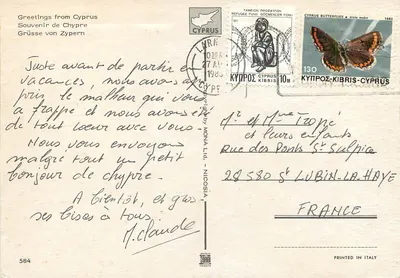 Greetings from Cyprus
Souvenir de Chypre
Grüsse von Zypern
CYPRUS
Juste avant de partir en
vacances, nous avons ap-
pris le malheur qui vous
a frappé et nous avons été
de tout cœur avec vous.
Nous vous envoyons
malgré tout un petit
bonjour de chypre.
A bientôt, et gros-
ses bises à tous.
M. Claude
584
by MONA LNL - NICOSIA
27 AU
1985
REFUGEE FUND
10
ΚΥΠΡΟΣ KIBRIS CYPRUS
CYPRUS BUTTERFLIES
130
ΚΥΠΡΟΣ-KIBRIS-CYPRUS
Mr et Mme
et leurs enfants
Rue des Ponts St Sulpice
28580 St LUBIN-LA-HAYE
FRANCE
PRINTED IN ITALY